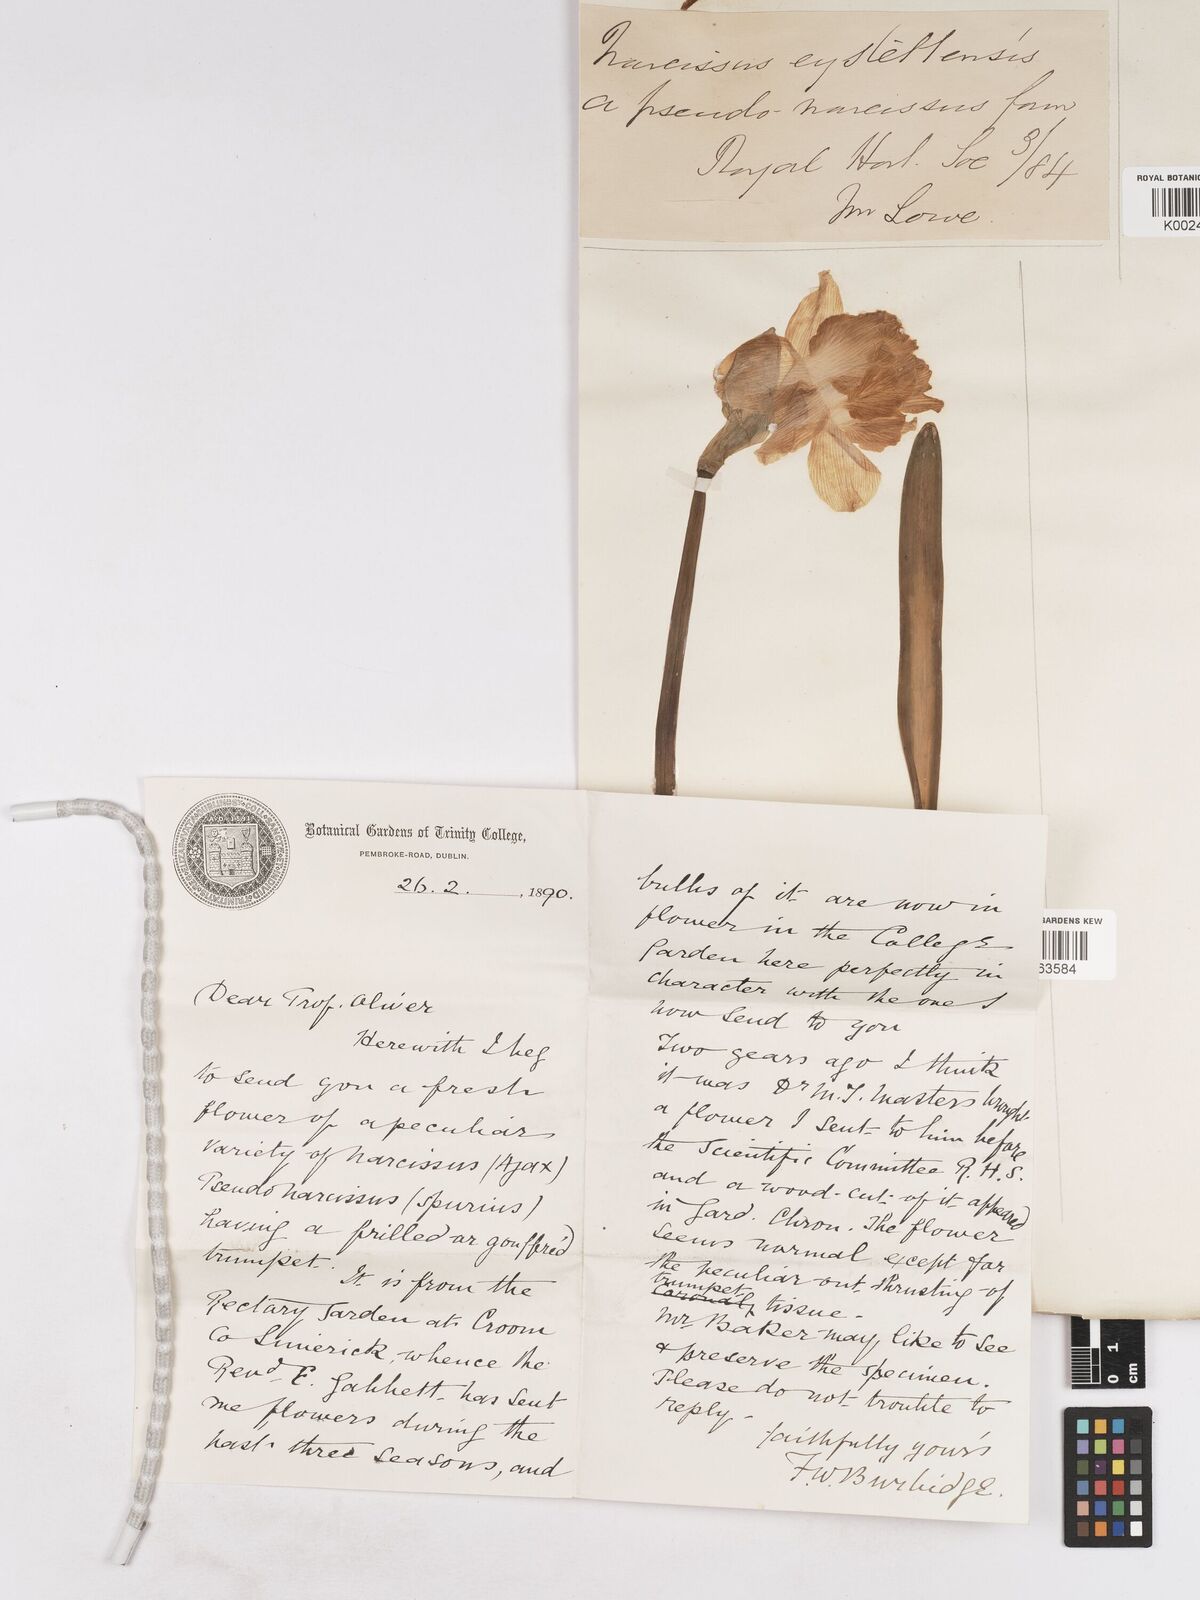 Narcissus eystettensis
a pseudo-narcissus form
Royal Hort. Soc 3/84
Mr Lowe.
ROYAL BOTANIC
K0024
GARDENS KEW
63584
Botanical Gardens of Trinity College,
PEMBROKE-ROAD, DUBLIN.
26. 2. , 1890.
Dear Prof. Oliver
Herewith I beg
to send you a fresh
flower of a peculiar
variety of Narcissus (Ajax)
Pseudo Narcissus (spurius)
having a frilled or gouffre'd
trumpet.
It is from the
Rectory Garden at Croom
Co Limerick, whence the
Revd. E. Gabbett has sent
me flowers during the
last three seasons, and
bulbs of it are now in
flower in the College
Garden here perfectly in
character with the one I
now send to you
Two years ago I think
it was Dr M.T. Masters brought
a flower I sent to him before
the Scientific Committee R.H.S.
and a wood-cut of it appeared
in Gard. Chron. The flower
seems normal except for
the peculiar out thrusting of
trumpet
Coronal, tissue.
Mr. Baker may like to see
& preserve the specimen.
Please do not trouble to
reply-
faithfully your's
F.W. Burbidge.
0 1
cm